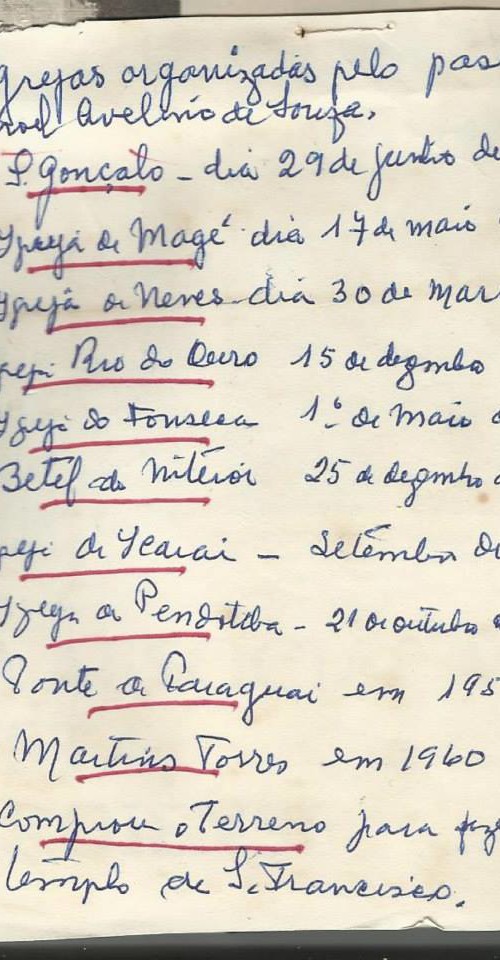 grejas organizadas pelo pas
noel Avelino de Souza.
S. Gonçalo - dia 29 de junho de
Igreja de Magé dia 17 de maio
Igreja de Neves - dia 30 de mar
reja Rio do Ouro 15 de dezembro
Igreja do Fonseca 1º de Maio d
Betel de Niterói 25 de dezembro d
reja de Icaraí - Setembro de
Igreja de Pendotiba - 21 de outubro d
Ponte de Paraguai em 195
Martins Torres em 1960
Comprou o Terreno para faze
templo de S. Francisco.